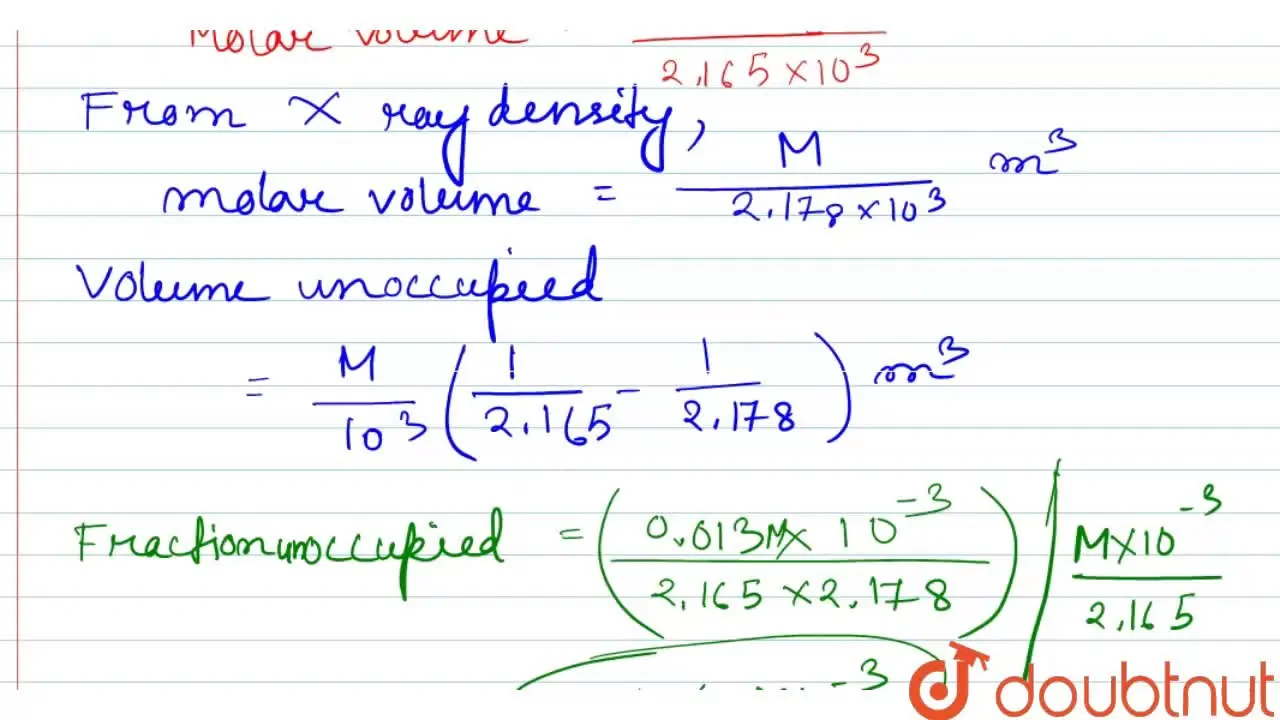 Molar volume
2.165×10³
From X ray density,
molar volume = M / 2.178×10³ m³
Volume unoccupied
= M / 10³ ( 1 / 2.165 - 1 / 2.178 ) m³
Fraction unoccupied = ( 0.013M× 10⁻³ / 2.165 ×2.178 ) / M×10⁻³ / 2.165
-3
doubtnut